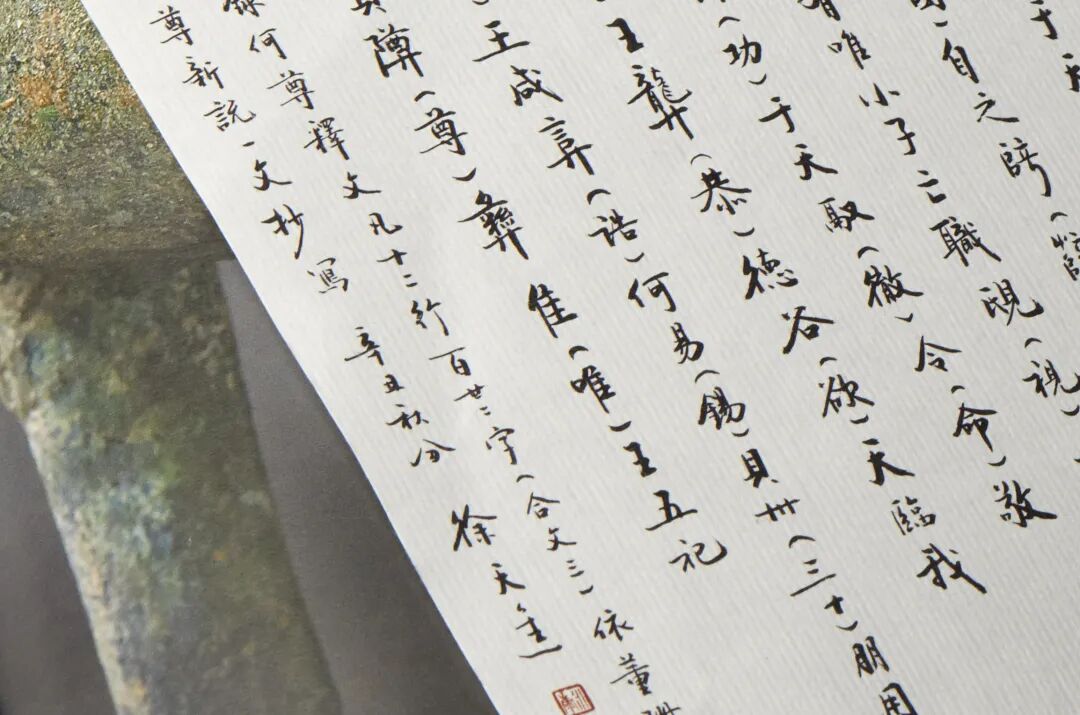 于天
自之
有唯小子亡職（視）
（功）于天馭（徹）令（命）敬
王龏（恭）德谷（欲）天臨我
）王咸𢍰（誥）何易（錫）貝卅（三十）朋用
隣（尊）彝 隹（唯）王五祀
何尊釋文凡十二行百廿二字（合文三）依董珊
尊新説一文抄寫 辛丑秋分
徐天進